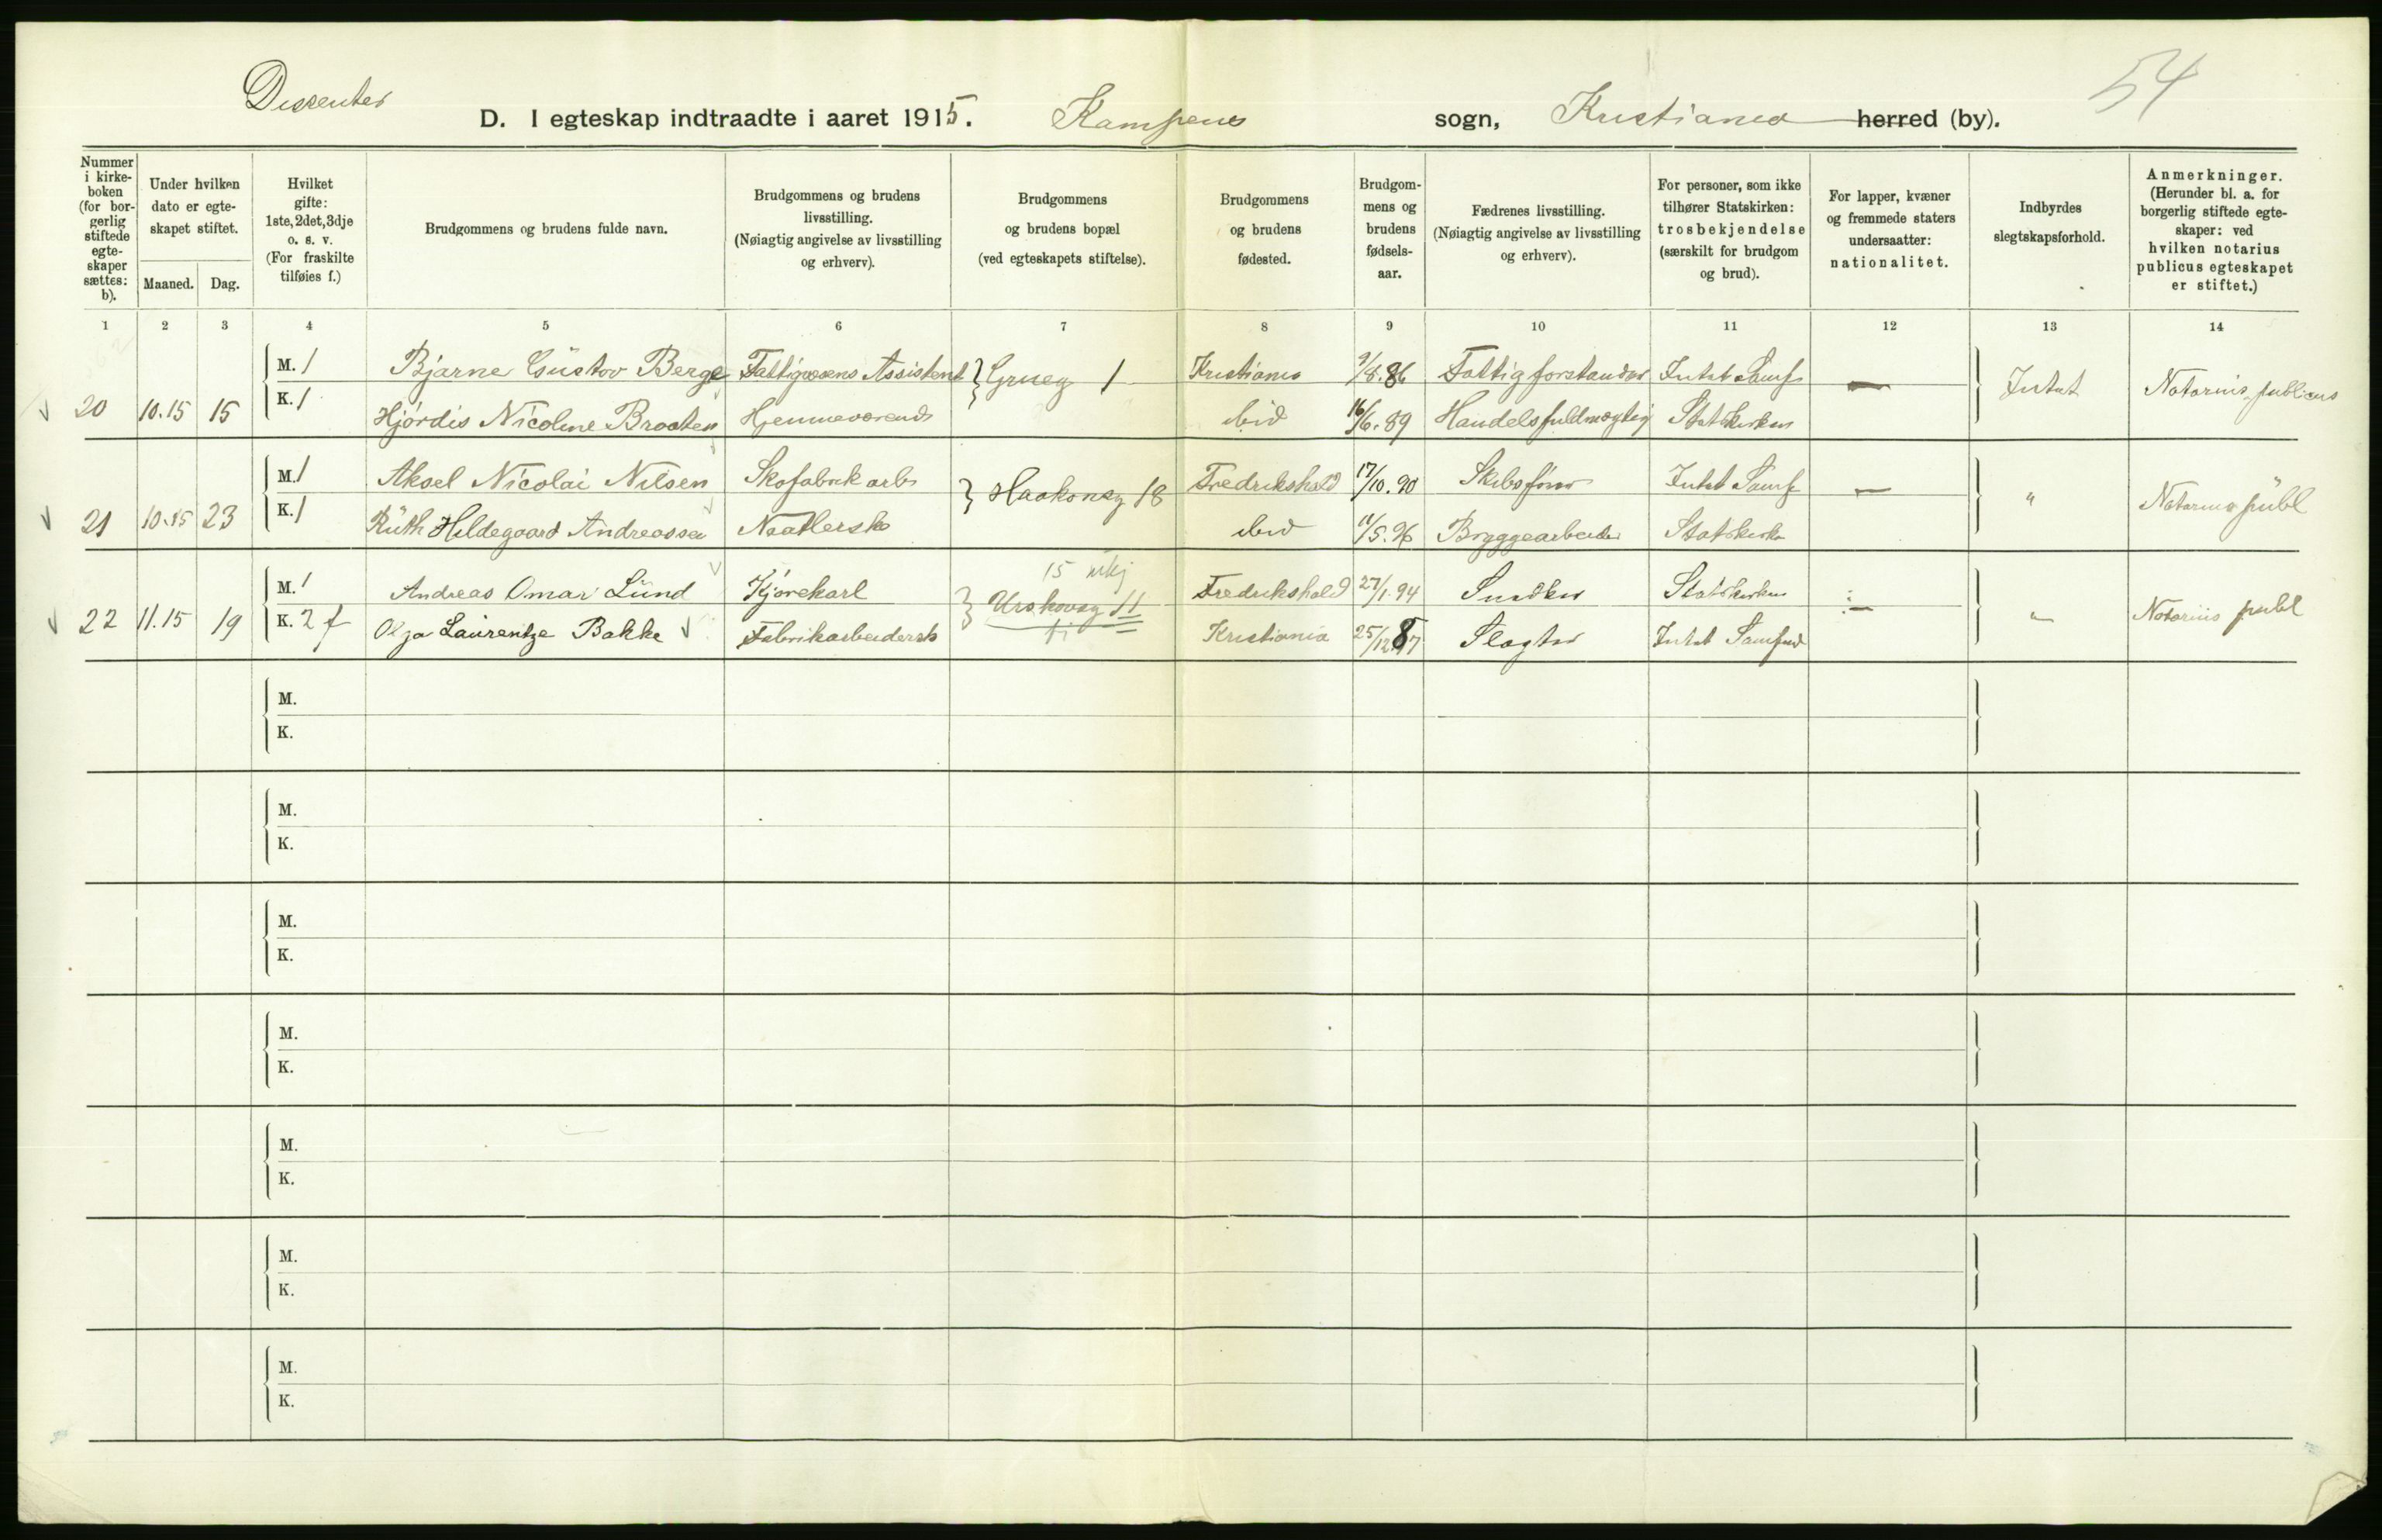 Dissenter
D. I egteskap indtraadte i aaret 1915. Kampens sogn, Kristiania herred (by).
54
Nummer i kirke-boken (for bor-gerlig stiftede egte-skaper sættes: b).
Under hvilken dato er egte-skapet stiftet.
Maaned. Dag.
Hvilket gifte: 1ste, 2det, 3dje o. s. v. (For fraskilte tilføies f.)
Brudgommens og brudens fulde navn.
Brudgommens og brudens livsstilling. (Nøiagtig angivelse av livsstilling og erhverv).
Brudgommens og brudens bopæl (ved egteskapets stiftelse).
Brudgommens og brudens fødested.
Brudgom-mens og brudens fødsels-aar.
Fædrenes livsstilling. (Nøiagtig angivelse av livsstilling og erhverv).
For personer, som ikke tilhører Statskirken: trosbekjendelse (særskilt for brudgom og brud).
For lapper, kvæner og fremmede staters undersaatter: nationalitet.
Indbyrdes slegtskapsforhold.
Anmerkninger. (Herunder bl. a. for borgerlig stiftede egte-skaper: ved hvilken notarius publicus egteskapet er stiftet.)
1 2 3 4 5 6 7 8 9 10 11 12 13 14
M. 1 Bjarne Gustav Berge Fattigvæsens Assistent } Grueg 1 Kristiania 9/8.86 Fattigforstander Intet Samf — Intet Notarius publicus
20 10.15 15 K. 1 Hjørdis Nicoline Braaten Hjemmeværende ibid 16/6.89 Handelsfuldmægtig Statskirken
M. 1 Aksel Nicolai Nilsen Skofabrik arb } Haakonsg 18 Fredrikshald 17/10.90 Skibsfører Intet Samf — " Notarius publ
21 10.15 23 K. 1 Ruth Hildegaard Andreassen Naatlerske ibid 11/5.96 Bryggearbeider Statskirke
15
M. 1 Andreas Omar Lund Kjørekarl } Urskovsg 11 Fredrikshald 27/1.94 Snedker Statskirken — " Notarius publ
22 11.15 19 K. 2 f Olga Laurentze Bakke Fabrikarbeiderske Kristiania 25/12.87 Slagter Intet Samfund
M.
K.
M.
K.
M.
K.
M.
K.
M.
K.
M.
K.
M.
K.